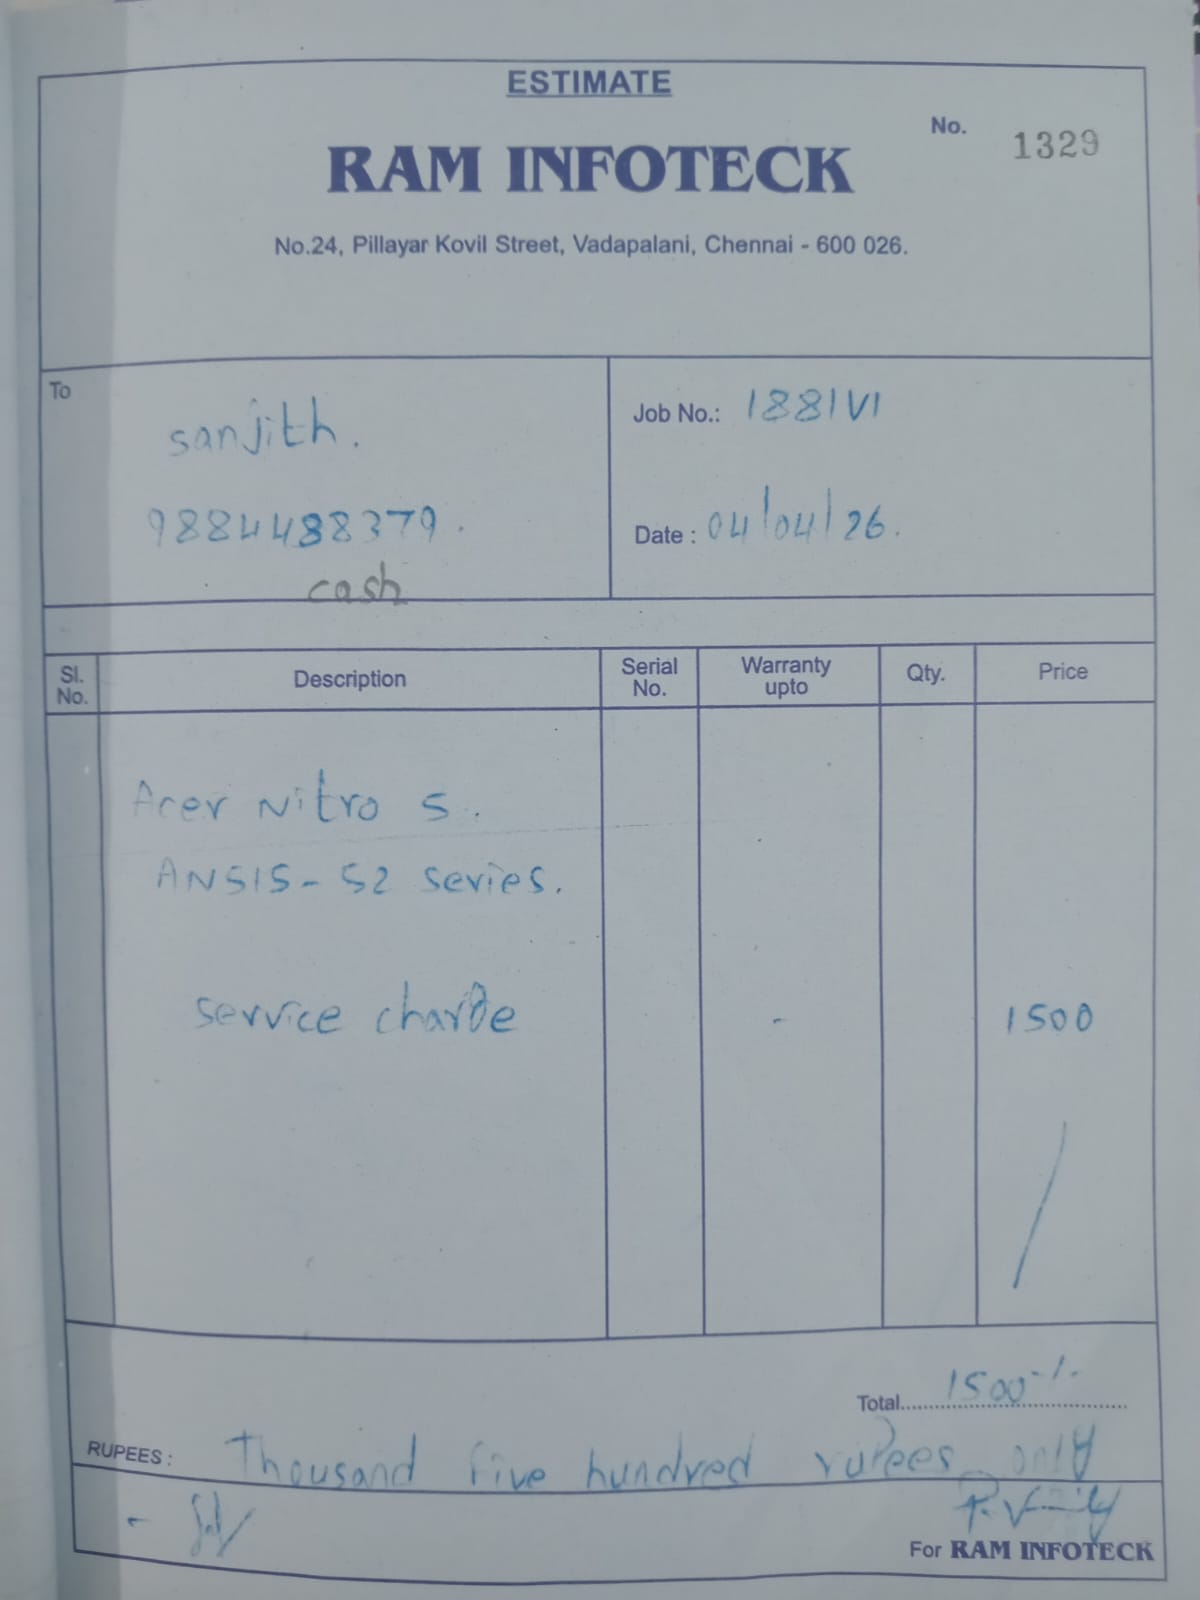 ESTIMATE
No. 1329
RAM INFOTECK
No.24, Pillayar Kovil Street, Vadapalani, Chennai - 600 026.
To
sanjith.
9884488379.
cash
Job No.: 1881VI
Date : 04/04/26.
Sl. No. Description Serial No. Warranty upto Qty. Price
Acer Nitro 5.
AN515-52 series.
service charge - 1500
Total 1500-/-
RUPEES : Thousand five hundred rupees only
For RAM INFOTECK